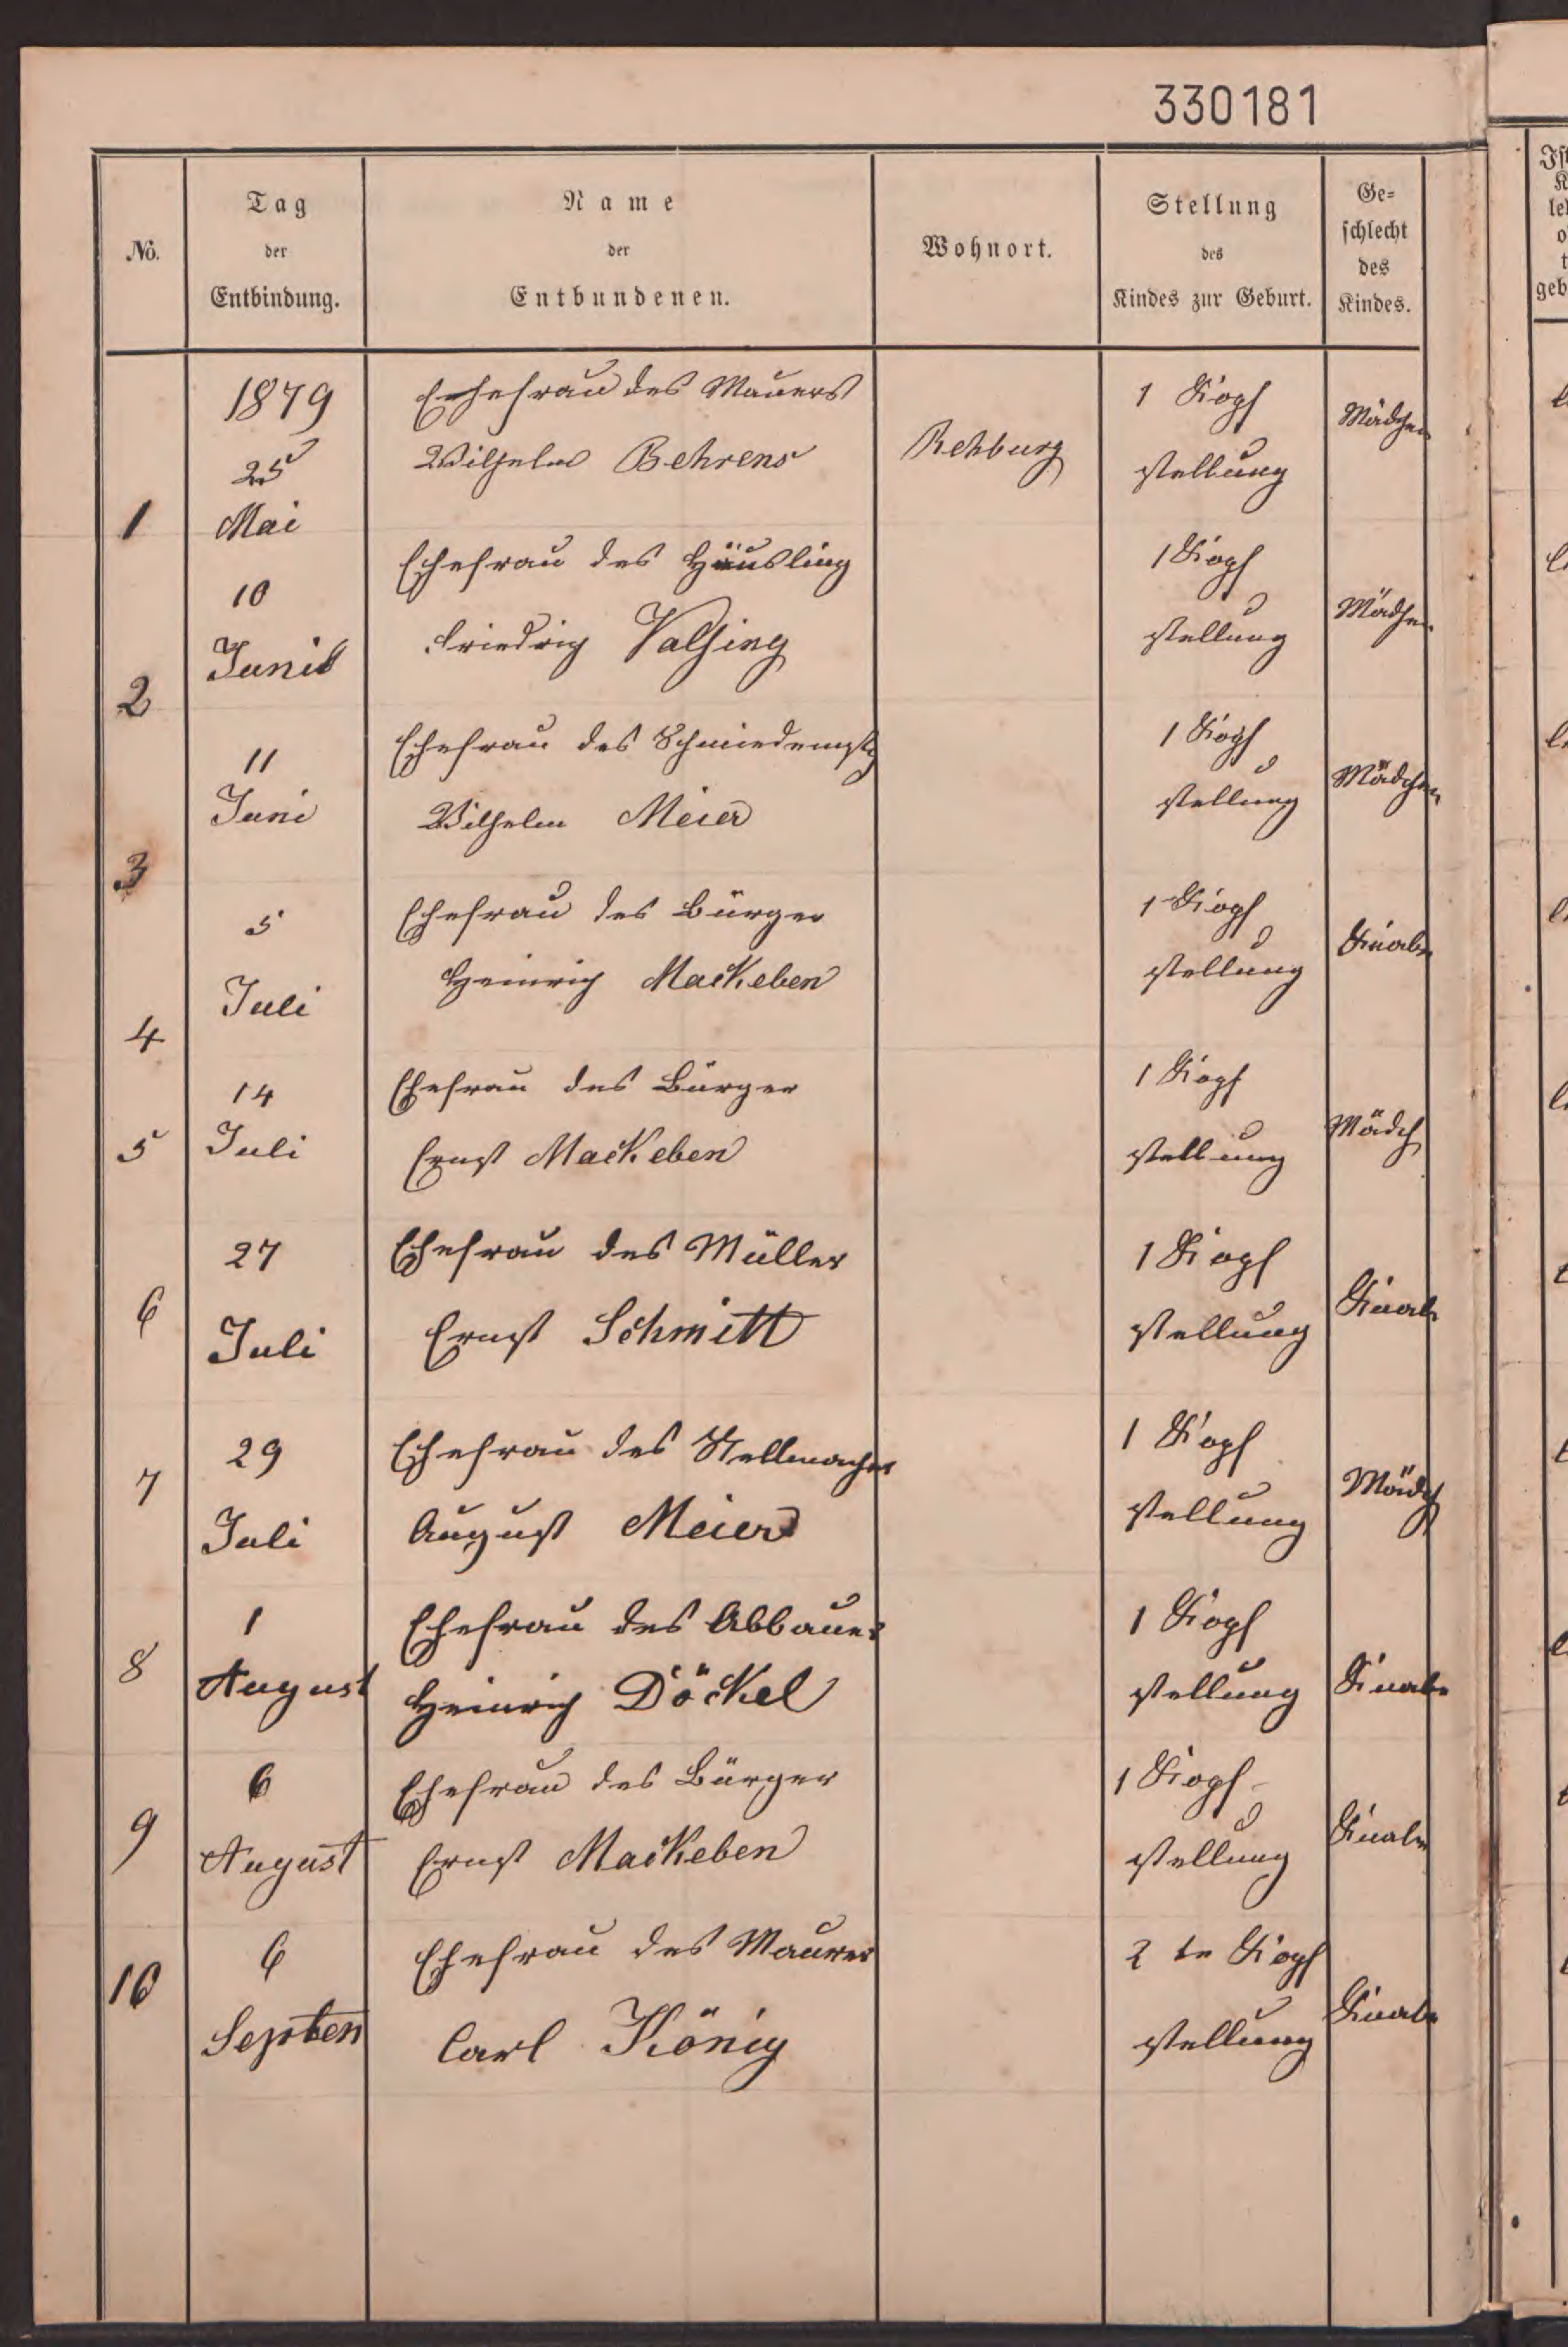 330181
No.
Tag
der
Entbindung.
Name
der
Entbundenen.
Wohnort.
Stellung
des
Kindes zur Geburt.
Ge=
schlecht
des
Kindes.
1
1879
25
Mai
Ehefrau des Mauers
Wilhelm Behrens
Rehburg
1 Kopf
stellung
Mädchen
2
10
Juni
Ehefrau des Häusling
Friedrich
1 Kopf
stellung
Mädchen
3
11
Juni
Ehefrau des
Wilhelm Meier
1 Kopf
stellung
Mädchen
4
5
Juli
Ehefrau des Bürger
Heinrich Mackeben
1 Kopf
stellung
Knabe
5
14
Juli
Ehefrau des Bürger
Ernst Mackeben
1 Kopf
stellung
Mädch
6
27
Juli
Ehefrau des Müller
Ernst Schmitt
1 Kopf
stellung
Knabe
7
29
Juli
Ehefrau des Stellmacher
August Meier
1 Kopf
stellung
Mädch
8
1
August
Ehefrau des Abbauer
Heinrich Döckel
1 Kopf
stellung
Knabe
9
6
August
Ehefrau des Bürger
Ernst Mackeben
1 Kopf
stellung
Knabe
10
6
Septen
Ehefrau des Maurer
Carl König
2 te Kopf
stellung
Knabe